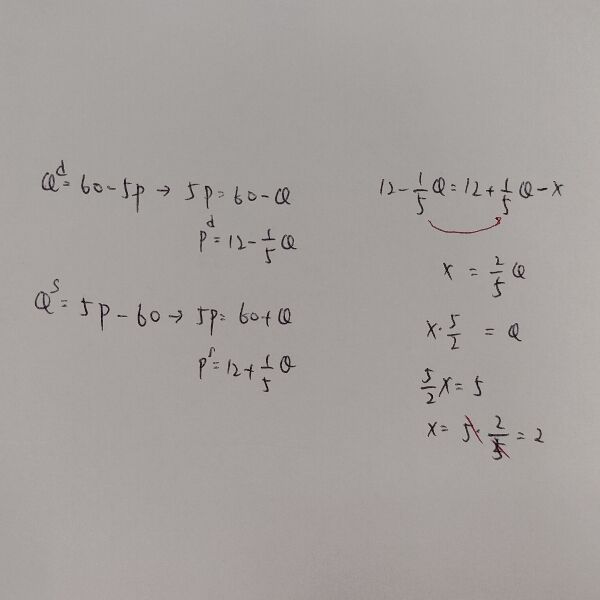 Qᵈ = 60 - 5p → 5p = 60 - Q
pᵈ = 12 - 1/5 Q
Qˢ = 5p - 60 → 5p = 60 + Q
pˢ = 12 + 1/5 Q
12 - 1/5 Q = 12 + 1/5 Q - x
x = 2/5 Q
x · 5/2 = Q
5/2 x = 5
x = 5 · 2/5 = 2